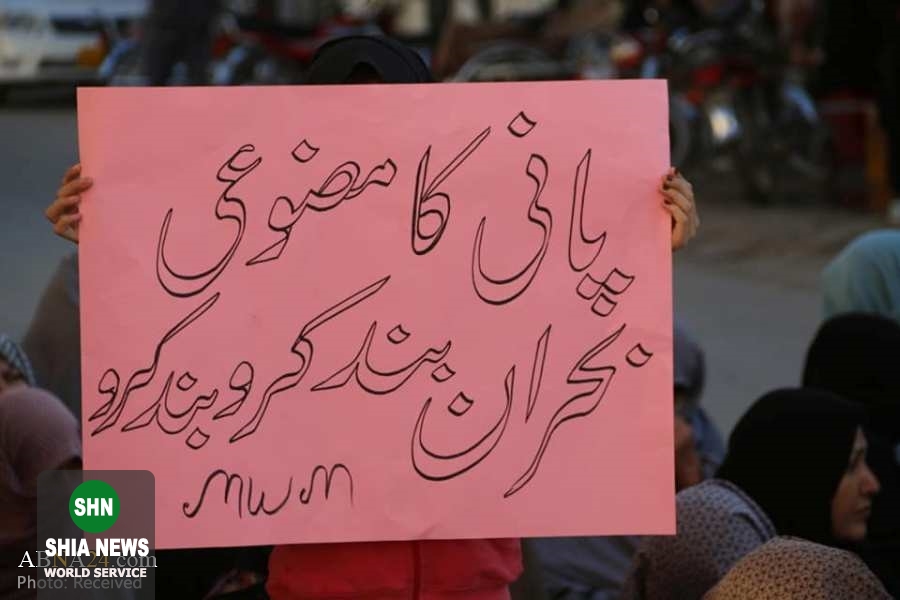 پانی کا مصنوعی
بحران بند کرو بند کرو
MWM
SHN
SHIA NEWS
WORLD SERVICE
ABNA24.com
Photo: Received